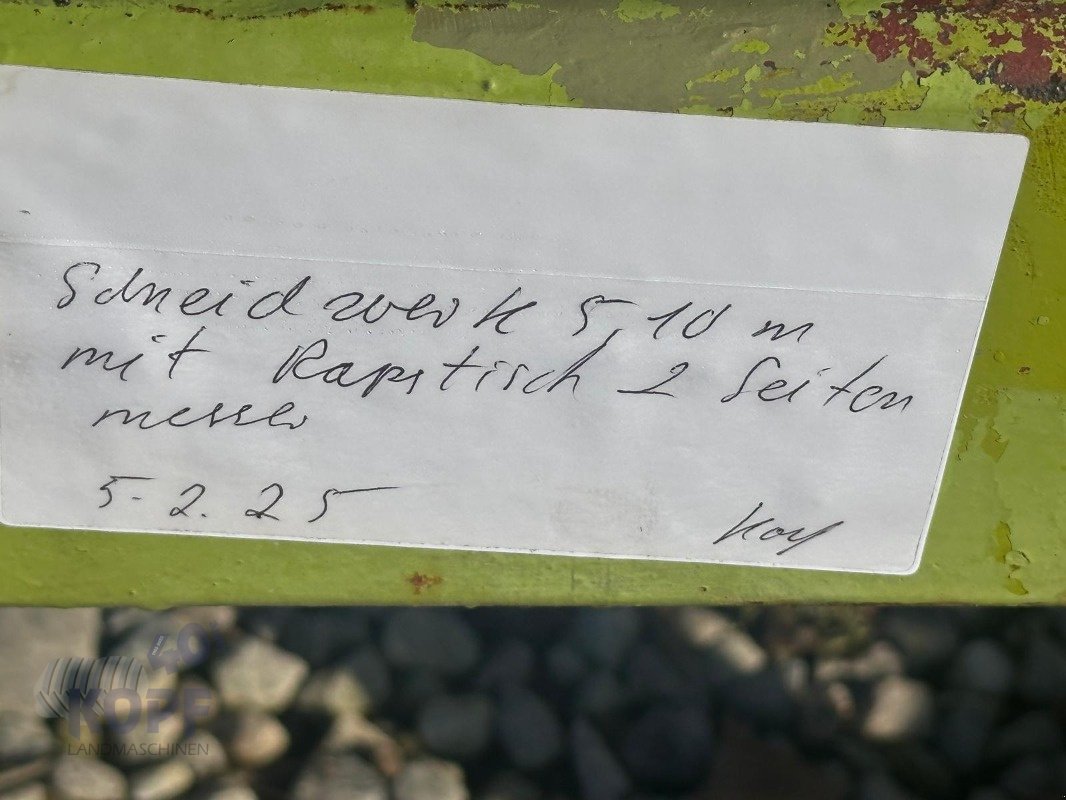 Schneidwerk 5,10 m
mit Rapstisch 2 Seiten
messer
5.2.25
KOPF
LANDMASCHINEN